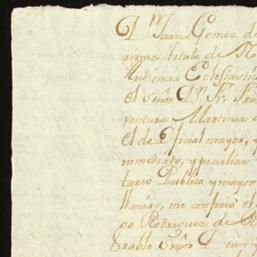 Dn Juan Gomez de
rirme titulo de No
Audiencia Eclesiastic
el Señor Dn Fr. Fra
ventura Martinez
el de Oficial mayor, y
inmediato, y peculiar
tario Publico y mayor
me confirió el
go Rodriguez de
erable Señor Dn